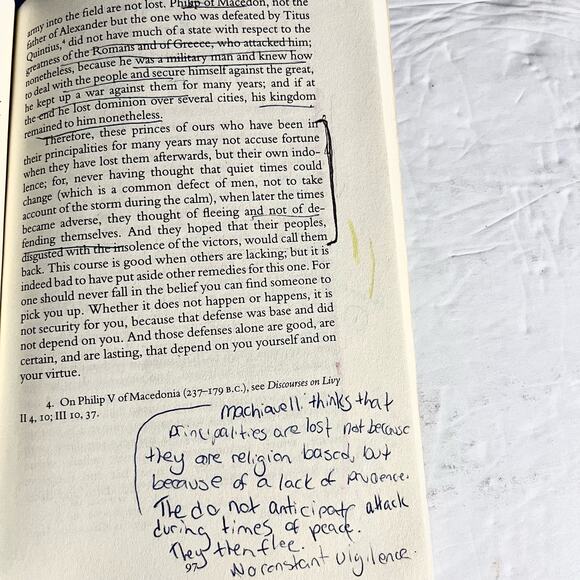 army into the field are not lost. Philip of Macedon, not the
father of Alexander but the one who was defeated by Titus
Quintius,⁴ did not have much of a state with respect to the
greatness of the Romans and of Greece, who attacked him;
nonetheless, because he was a military man and knew how
to deal with the people and secure himself against the great,
he kept up a war against them for many years; and if at
the end he lost dominion over several cities, his kingdom
remained to him nonetheless.
Therefore, these princes of ours who have been in
their principalities for many years may not accuse fortune
when they have lost them afterwards, but their own indo-
lence; for, never having thought that quiet times could
change (which is a common defect of men, not to take
account of the storm during the calm), when later the times
became adverse, they thought of fleeing and not of de-
fending themselves. And they hoped that their peoples,
disgusted with the insolence of the victors, would call them
back. This course is good when others are lacking; but it is
indeed bad to have put aside other remedies for this one. For
one should never fall in the belief you can find someone to
pick you up. Whether it does not happen or happens, it is
not security for you, because that defense was base and did
not depend on you. And those defenses alone are good, are
certain, and are lasting, that depend on you yourself and on
your virtue.
4. On Philip V of Macedonia (237–179 B.C.), see Discourses on Livy
II 4, 10; III 10, 37.
Machiavelli thinks that
principalities are lost not because
they are religion based, but
because of a lack of prudence.
The do not anticipate attack
during times of peace.
They then flee.
97
No constant vigilence.